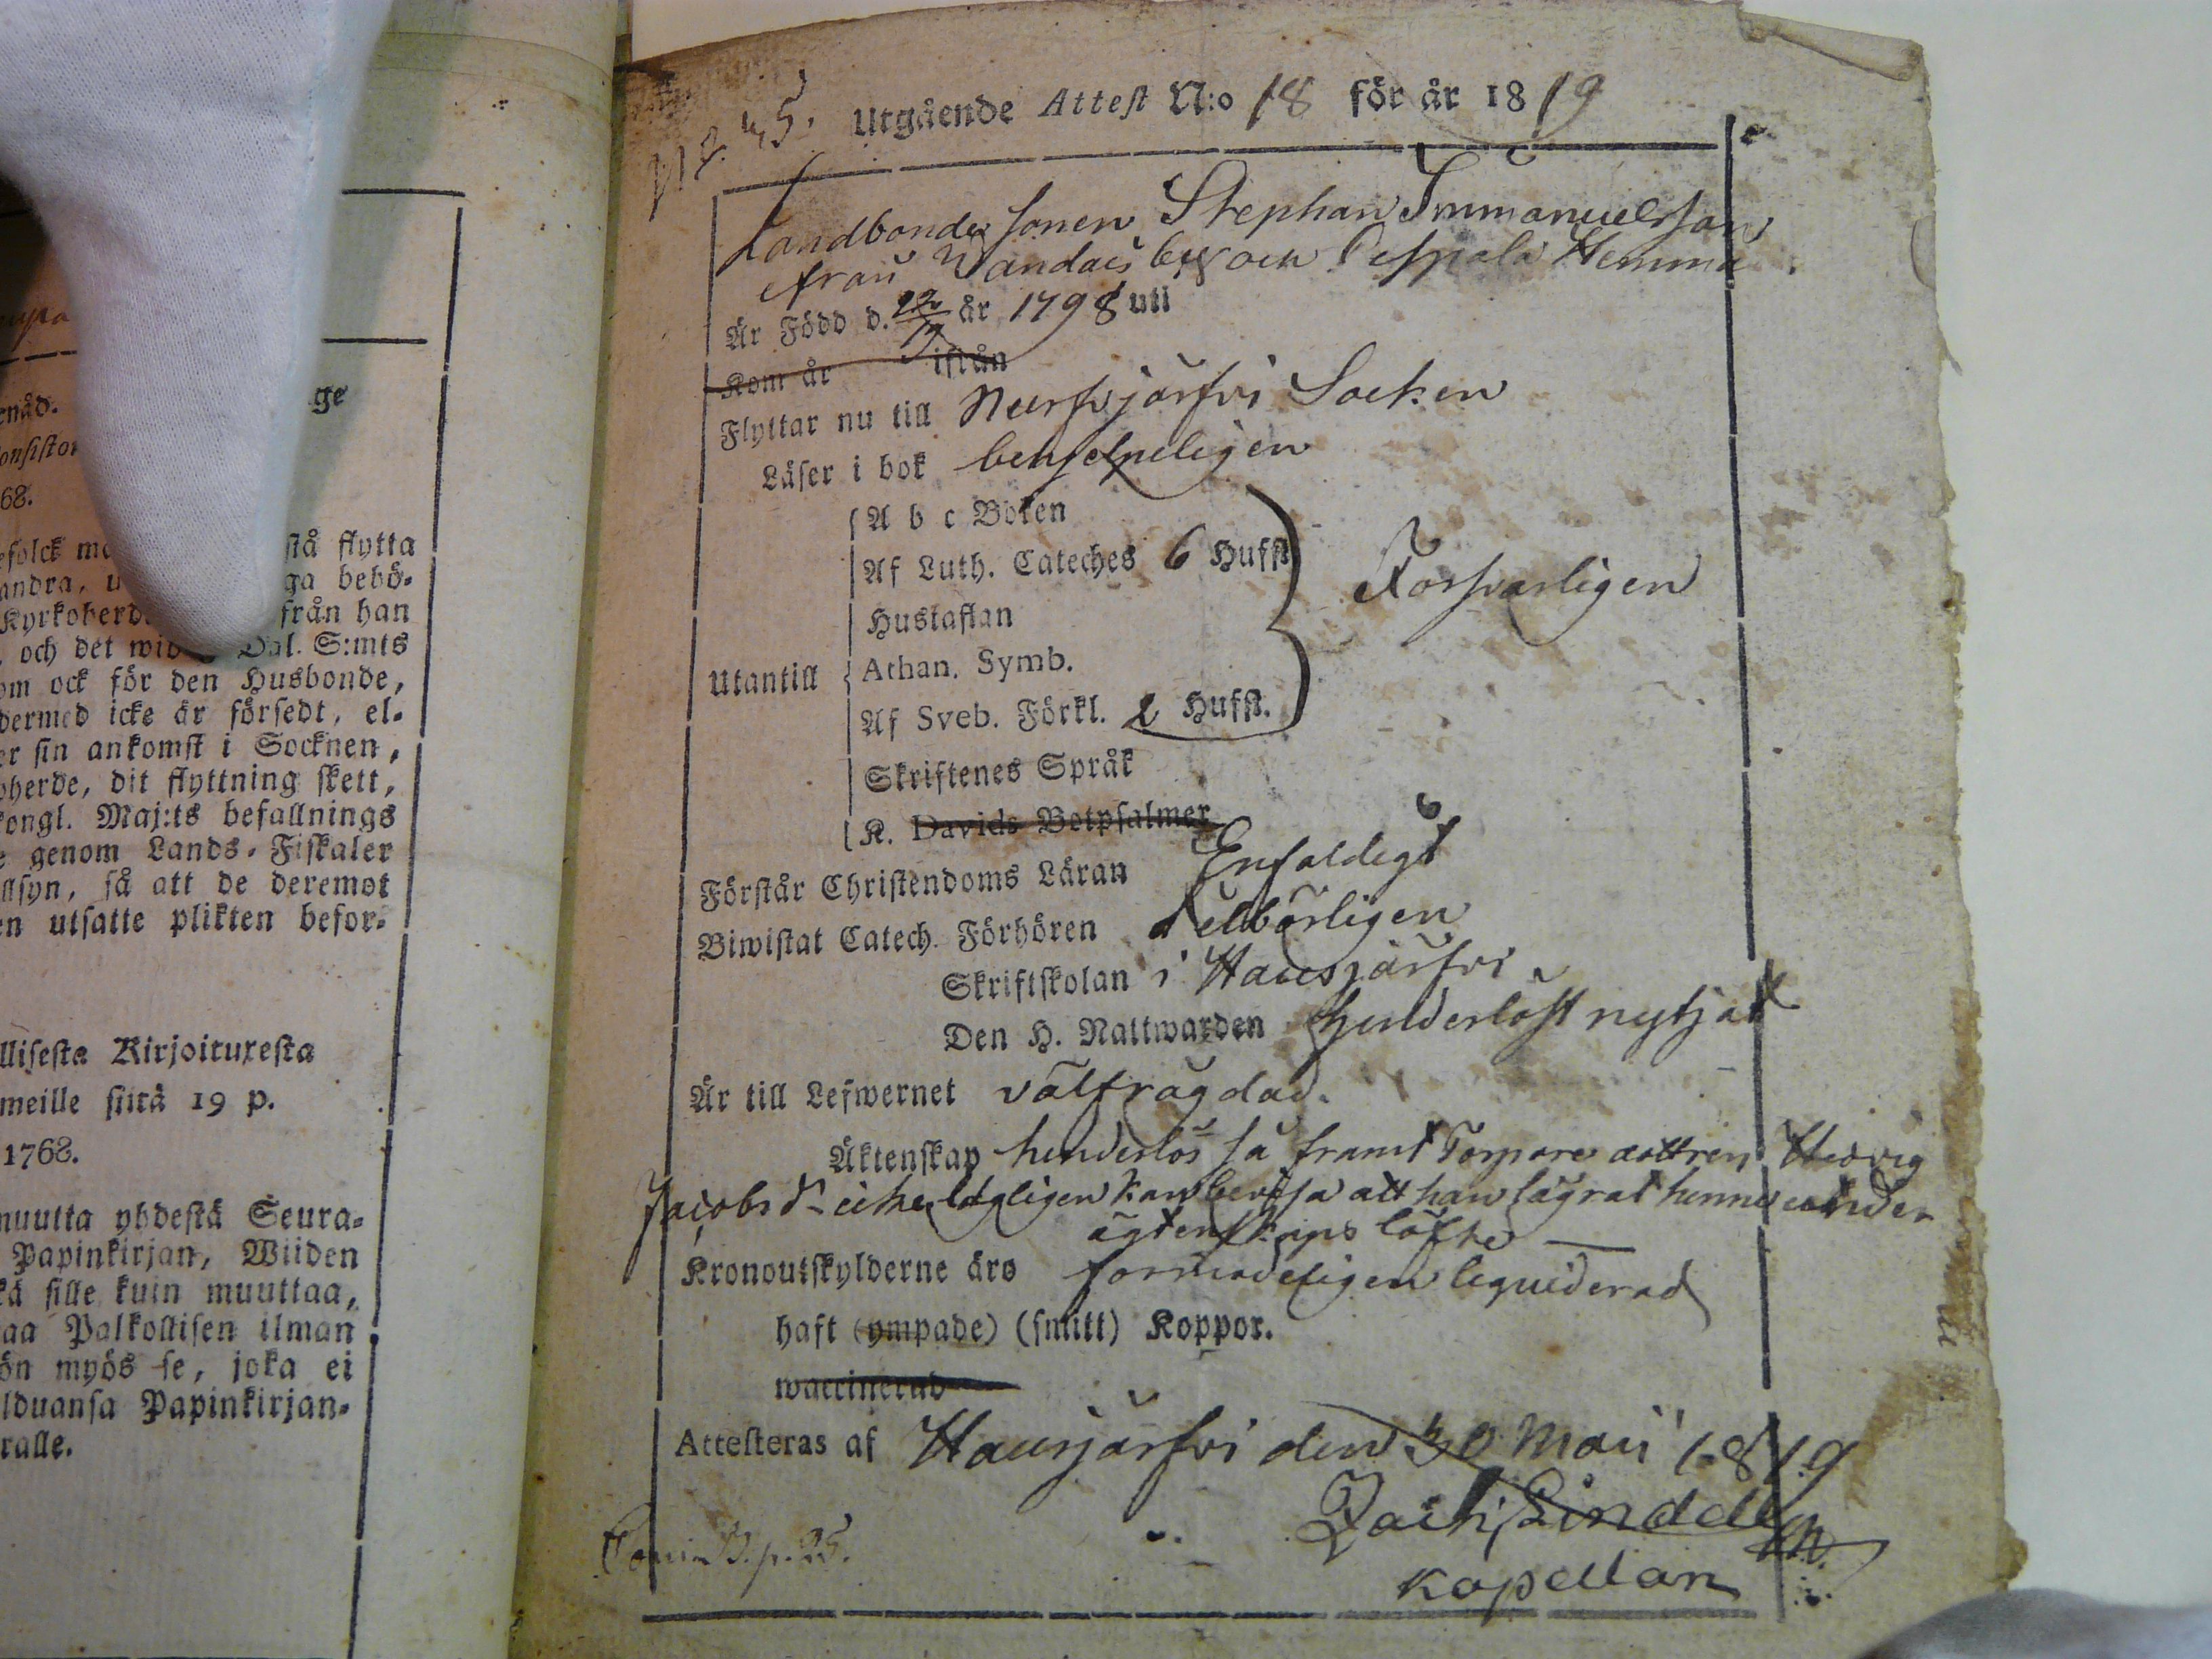 ge
enåd.
68.
stå flytta
andra, ga behö-
från han
och det wid Dal. S:mts
om ock för den Husbonde,
dermed icke är försedt, el-
er sin ankomst i Socknen,
oherde, dit flyttning skett,
Kongl. Maj:ts befallnings
e genom Lands-Fiskaler
llsyn, så att de deremot
en utsatte plikten befor-
llisesta Kirjoituxesta
meille siitä 19 p.
1768.
muutta yhdestä Seura-
Papinkirjan, Wiiden
kä sille kuin muuttaa,
aa Palkollisen ilman
ön myös se, joka ei
lduansa Papinkirjan-
ralle.
Utgående Attest N:o 18 för år 1819
Landbonde sonen Stephan Immanuelsson
från by och Hemma
Är Född d. år 1798 uti
Kom år ifrån
Flyttar nu till Nurmijärfvi Socken
Läser i bok
A b c Boken
Af Luth. Cateches 6 Hufst.
Hustaflan
Försvarligen
Athan. Symb.
Utantill
Af Sveb. Förkl. 2 Hufst.
Skriftenes Språk
K. Davids Botpsalmer
Förstår Christendoms Läran Enfaldigt
Biwistat Catech. Förhören Tilbörligen
Skriftskolan i Hausjärfvi
Den H. Nattwarden hinderlöst nytjat
Är till Lefwernet välfrägdad.
Äktenskap hinderlös så framt Torpare dottren Hedvig
Jacobsd:r icke lagligen kan bevisa att han lägrat henne under
ägtenskaps löfte —
Kronoutskylderne äro liquiderad
haft (ympade) (smitt) Koppor.
waccinerad
Attesteras af Hausjärfvi den 30 Maii 1819
Kapellan